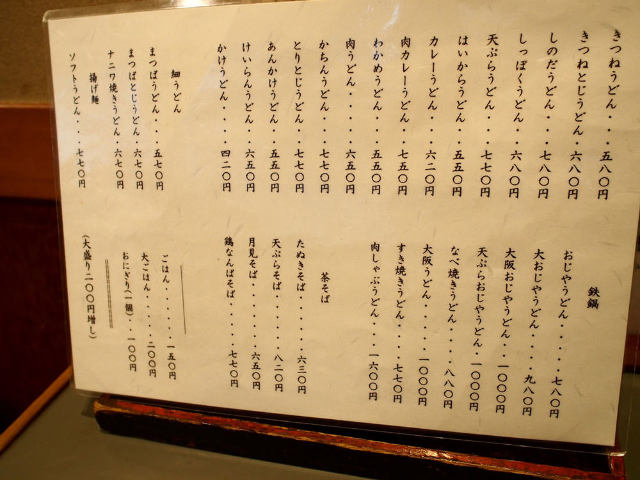 きつねうどん・・・五八〇円
きつねとじうどん・六八〇円
しのだうどん・・・七八〇円
しっぽくうどん・・六八〇円
天ぷらうどん・・・七七〇円
はいからうどん・・五五〇円
カレーうどん・・・六二〇円
肉カレーうどん・・七五〇円
わかめうどん・・・五五〇円
肉うどん・・・・・六五〇円
かちんうどん・・・七七〇円
とりとじうどん・・七七〇円
あんかけうどん・・五五〇円
けいらんうどん・・六五〇円
かけうどん・・・・四二〇円
細うどん
まつばうどん・・・五七〇円
まつばとじうどん・六七〇円
ナニワ焼きうどん・六七〇円
揚げ麺
ソフトうどん・・・七七〇円
鉄鍋
おじやうどん・・・・・七八〇円
大おじやうどん・・・・九八〇円
大阪おじやうどん・・一〇〇〇円
天ぷらおじやうどん・一〇〇〇円
なべ焼きうどん・・・・八八〇円
大阪うどん・・・・・一〇〇〇円
すき焼きうどん・・・・七七〇円
肉しゃぶうどん・・・一六〇〇円
茶そば
たぬきそば・・・・・・六三〇円
天ぷらそば・・・・・・八二〇円
月見そば・・・・・・・六五〇円
鶏なんばそば・・・・・七七〇円
ごはん・・・・・・・一五〇円
大ごはん・・・・・・二〇〇円
おにぎり(一個)・・一〇〇円
(大盛り二〇〇円増し)